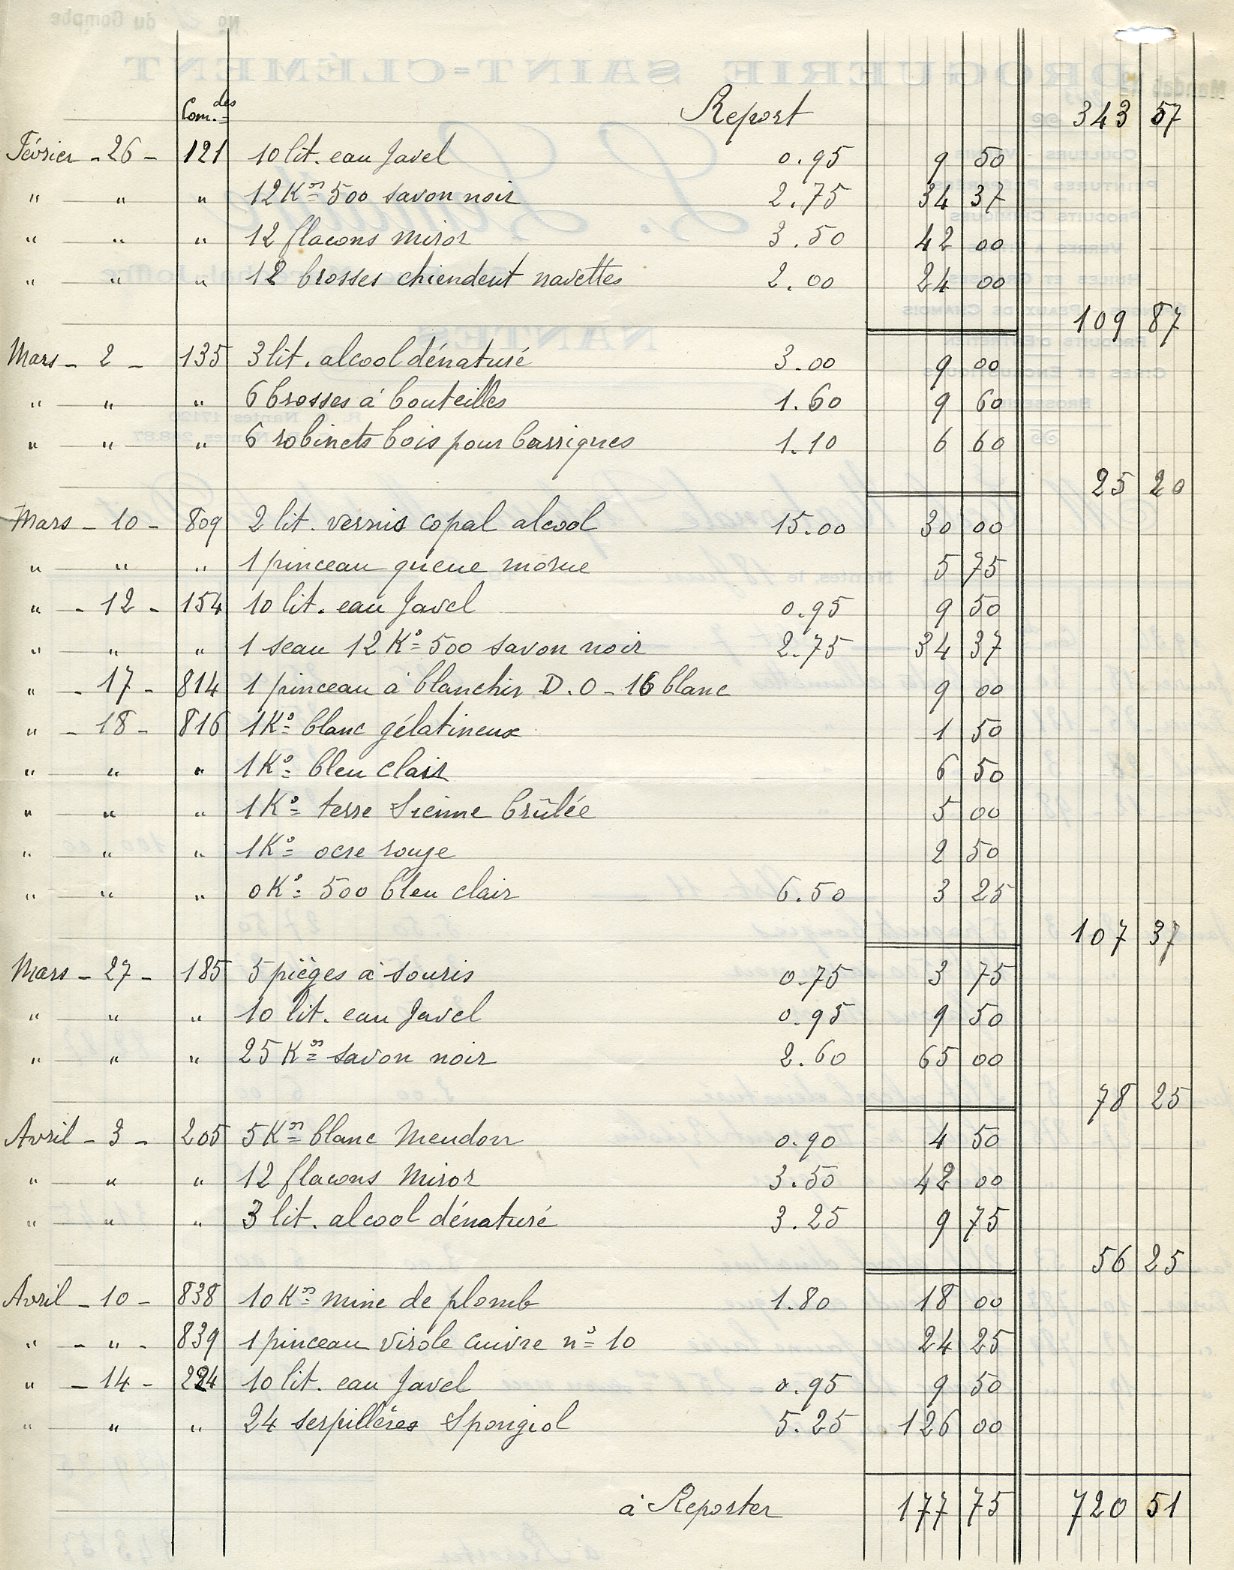 Com.des Report 343 57
Février - 26 - 121 10 lit. eau Javel 0.95 9 50
" " " 12 Kos 500 savon noir 2.75 34 37
" " " 12 flacons Miror 3.50 42 00
" " " 12 brosses chiendent navettes 2.00 24 00
109 87
Mars - 2 - 135 3 lit. alcool dénaturé 3.00 9 00
" " " 6 brosses à bouteilles 1.60 9 60
" " " 6 robinets bois pour barriques 1.10 6 60
25 20
Mars - 10 - 809 2 lit. vernis copal alcool 15.00 30 00
" " " 1 pinceau queue morue 5 75
" - 12 - 154 10 lit. eau Javel 0.95 9 50
" " " 1 seau 12 Ko 500 savon noir 2.75 34 37
" - 17 - 814 1 pinceau à blanchir D.O - 16 blanc 9 00
" - 18 - 816 1 Ko blanc gélatineux 1 50
" " " 1 Ko bleu clair 6 50
" " " 1 Ko terre Sienne brûlée 5 00
" " " 1 Ko ocre rouge 2 50
" " " 0 Ko 500 bleu clair 6.50 3 25
107 37
Mars - 27 - 185 5 pièges à souris 0.75 3 75
" " " 10 lit. eau Javel 0.95 9 50
" " " 25 Kos savon noir 2.60 65 00
78 25
Avril - 3 - 205 5 Kos blanc Meudon 0.90 4 50
" " " 12 flacons Miror 3.50 42 00
" " " 3 lit. alcool dénaturé 3.25 9 75
56 25
Avril - 10 - 838 10 Kos mine de plomb 1.80 18 00
" - " - 839 1 pinceau virole cuivre no 10 24 25
" - 14 - 224 10 lit. eau Javel 0.95 9 50
" " " 24 serpillères Spongiol 5.25 126 00
à Reporter 177 75 720 51